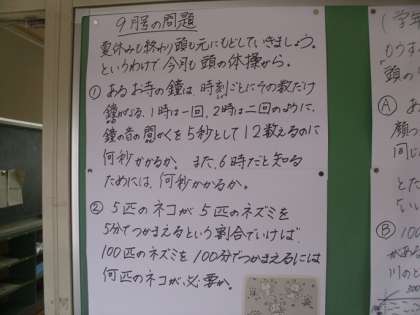 9月号の問題
夏休みも終わり頭も元にもどしていきましょう。
というわけで今月も頭の体操から。
① あるお寺の鐘は、時刻ごとにその数だけ
鐘がなる、1時は一回、2時は二回のように、
鐘の音の間かくを5秒として12数えるのに
何秒かかるか。また、6時だと知る
ためには、何秒かかるか。
② 5匹のネコが5匹のネズミを
5分でつかまえるという割合でいけば
100匹のネズミを100分でつかまえるには
何匹のネコが必要か。
(学年
もうす
「頭の
Ⓐ あ
顔っ
同じ
とた
ないし
Ⓑ 100
がある
川のと